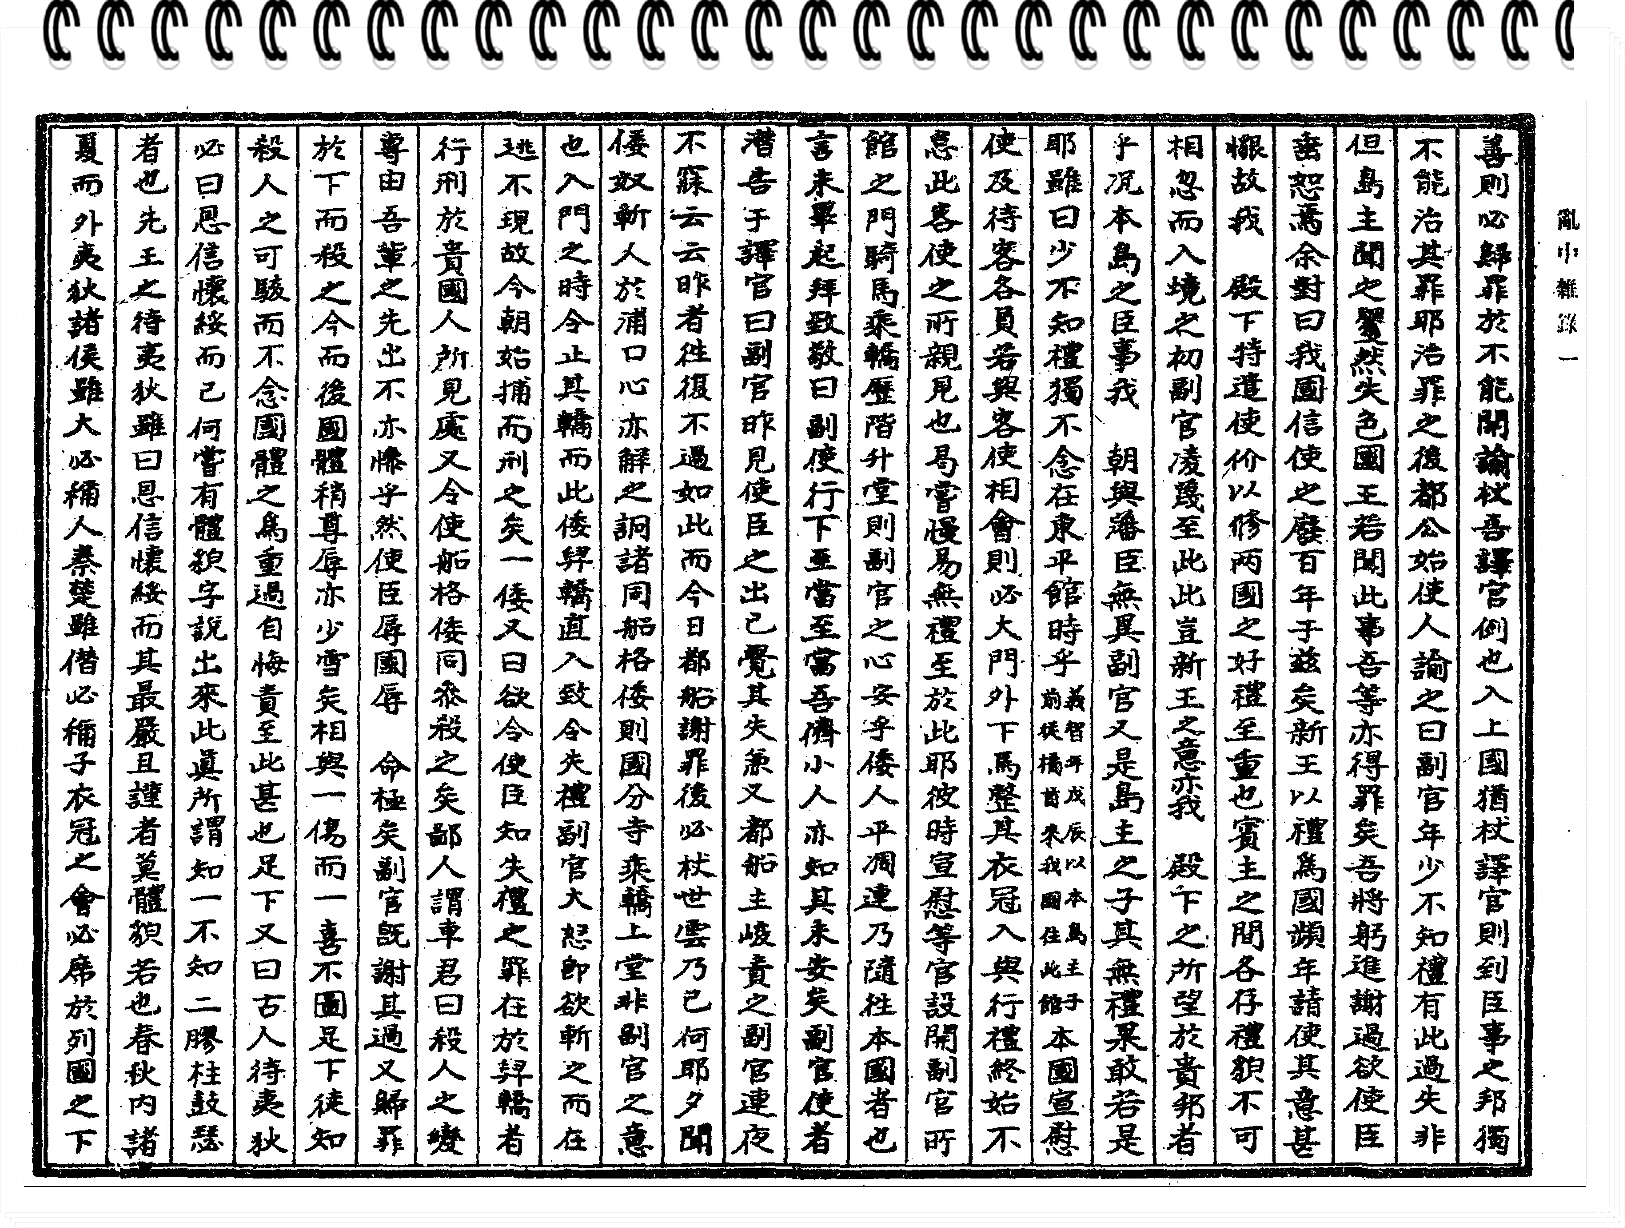 亂中雜錄一
善則必歸罪於不能開諭杖吾譯官例也入上國猶杖譯官則到臣事之邦獨
不能治其罪耶治罪之後都公始使人諭之曰副官年少不知禮有此過失非
但島主聞之矍然失色國王若聞此事吾等亦得罪矣吾將躬進謝過欲使臣
垂恕焉余對曰我國信使之廢百年于玆矣新王以禮爲國頻年請使其意甚
懇故我 殿下特遣使价以修兩國之好禮至重也賓主之間各存禮貌不可
相忽而入境之初副官凌蔑至此此豈新王之意亦我 殿下之所望於貴邦者
乎况本島之臣事我 朝與藩臣無異副官又是島主之子其無禮果敢若是
耶雖曰少不知禮獨不念在東平館時乎義智年戊辰以本島主子前從橘酋來我國住此館本國宣慰
使及待客各員若與客使相會則必大門外下馬整其衣冠入與行禮終始不
怠此客使之所親見也曷嘗慢易無禮至於此耶彼時宣慰等官設開副官所
館之門騎馬乘轎歷階升堂則副官之心安乎倭人平凋連乃隨往本國者也
言未畢起拜致敬曰副使行下至當至當吾儕小人亦知其未安矣副官使者
潛告于譯官曰副官昨見使臣之出已覺其失兼又都船主峻責之副官連夜
不寐云云昨者往復不過如此而今日都船謝罪後必杖世雲乃已何耶夕聞
倭奴斬人於浦口心亦解之詗諸同船格倭則國分寺乘轎上堂非副官之意
也入門之時令止其轎而此倭舁轎直入致令失禮副官大怒卽欲斬之而在
逃不現故今朝始捕而刑之矣一倭又曰欲令使臣知失禮之罪在於舁轎者
行刑於貴國人所見處又令使船格倭同叅殺之矣鄙人謂車君曰殺人之變
專由吾輩之先出不亦慘乎然使臣辱國辱 命極矣副官旣謝其過又歸罪
於下而殺之今而後國體稍尊辱亦少雪矣相與一傷而一喜不圖足下徒知
殺人之可駭而不念國體之爲重過自悔責至此甚也足下又曰古人待夷狄
必曰恩信懷綏而已何嘗有體貌字說出來此眞所謂知一不知二膠柱鼓瑟
者也先王之待夷狄雖曰恩信懷綏而其最嚴且謹者莫體貌若也春秋內諸
夏而外夷狄諸侯雖大必稱人秦楚雖僭必稱子衣冠之會必席於列國之下